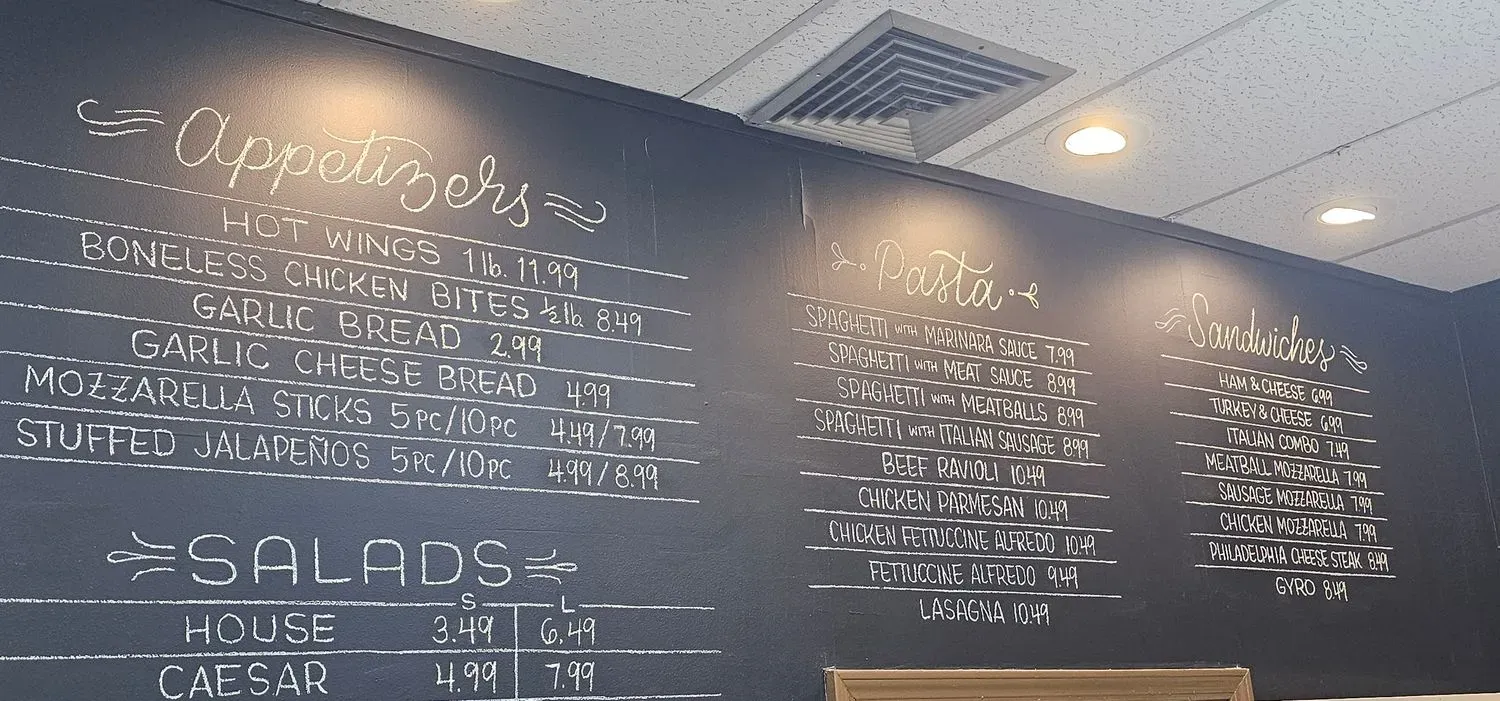 Appetizers
HOT WINGS 1 lb. 11.99
BONELESS CHICKEN BITES ½ lb 8.49
GARLIC BREAD 2.99
GARLIC CHEESE BREAD 4.99
MOZZARELLA STICKS 5PC/10PC 4.49/7.99
STUFFED JALAPEÑOS 5PC/10PC 4.99/8.99
SALADS
S L
HOUSE 3.49 6.49
CAESAR 4.99 7.99
Pasta
SPAGHETTI WITH MARINARA SAUCE 7.99
SPAGHETTI WITH MEAT SAUCE 8.99
SPAGHETTI WITH MEATBALLS 8.99
SPAGHETTI WITH ITALIAN SAUSAGE 8.99
BEEF RAVIOLI 10.49
CHICKEN PARMESAN 10.49
CHICKEN FETTUCCINE ALFREDO 10.49
FETTUCCINE ALFREDO 9.49
LASAGNA 10.49
Sandwiches
HAM & CHEESE 6.99
TURKEY & CHEESE 6.99
ITALIAN COMBO 7.49
MEATBALL MOZZARELLA 7.99
SAUSAGE MOZZARELLA 7.99
CHICKEN MOZZARELLA 7.99
PHILADELPHIA CHEESE STEAK 8.49
GYRO 8.49